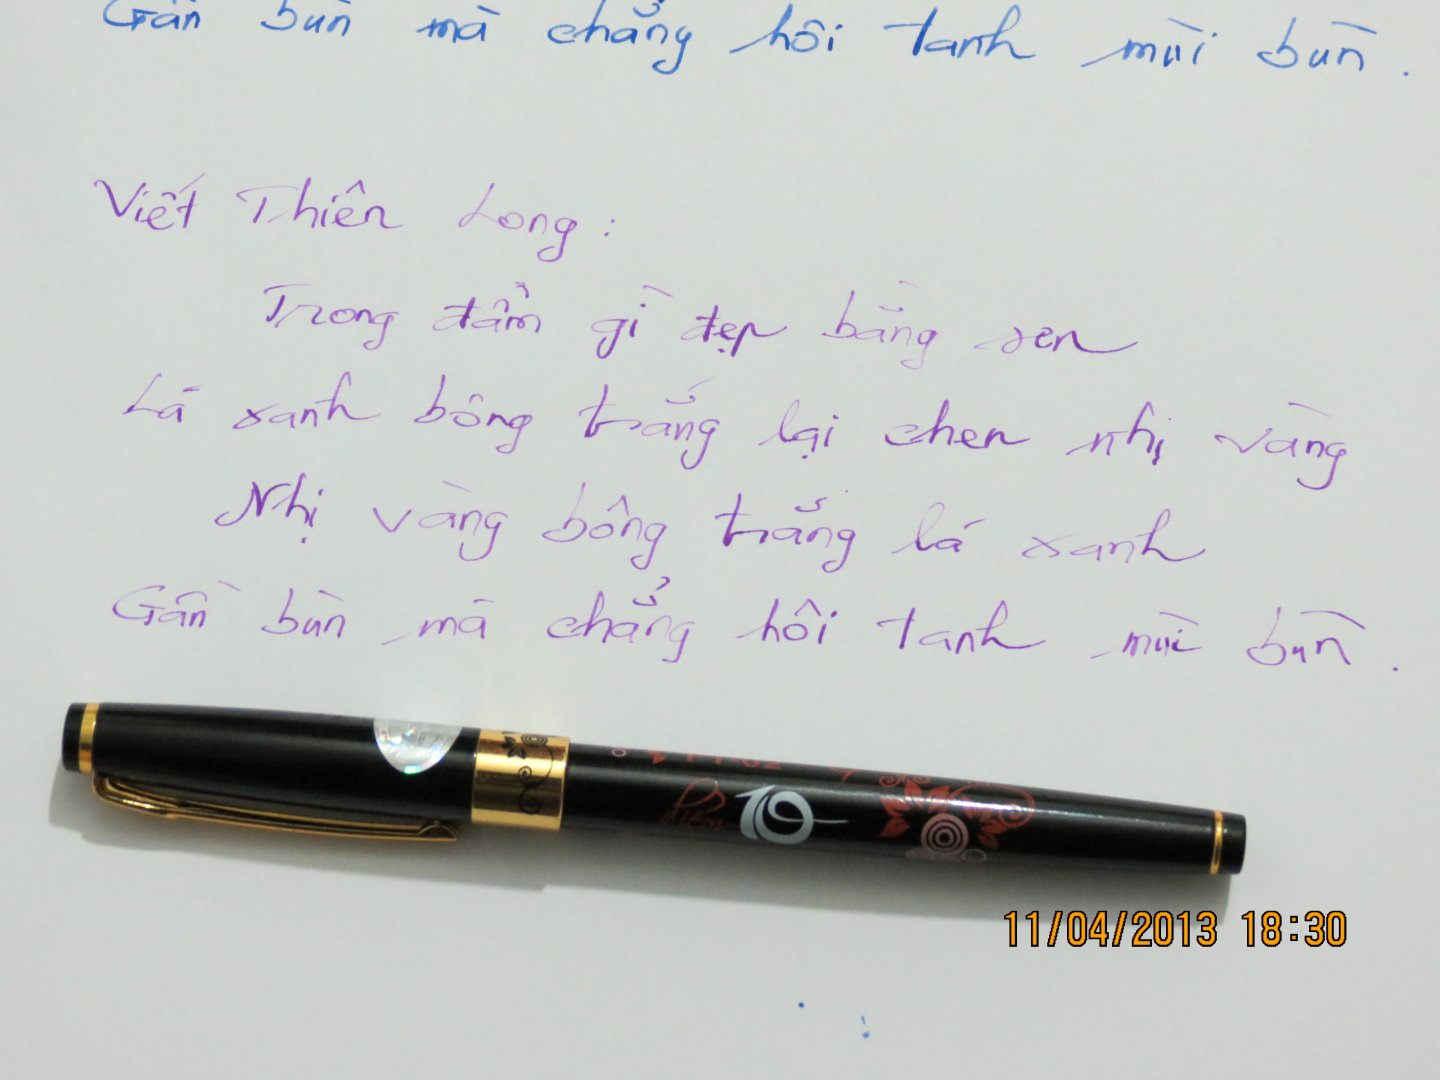 Gần bùn mà chẳng hôi tanh mùi bùn.
Viết Thiên Long:
Trong đầm gì đẹp bằng sen
Lá xanh bông trắng lại chen nhị vàng
Nhị vàng bông trắng lá xanh
Gần bùn mà chẳng hôi tanh mùi bùn.
Điểm 10
11/04/2013 18:30